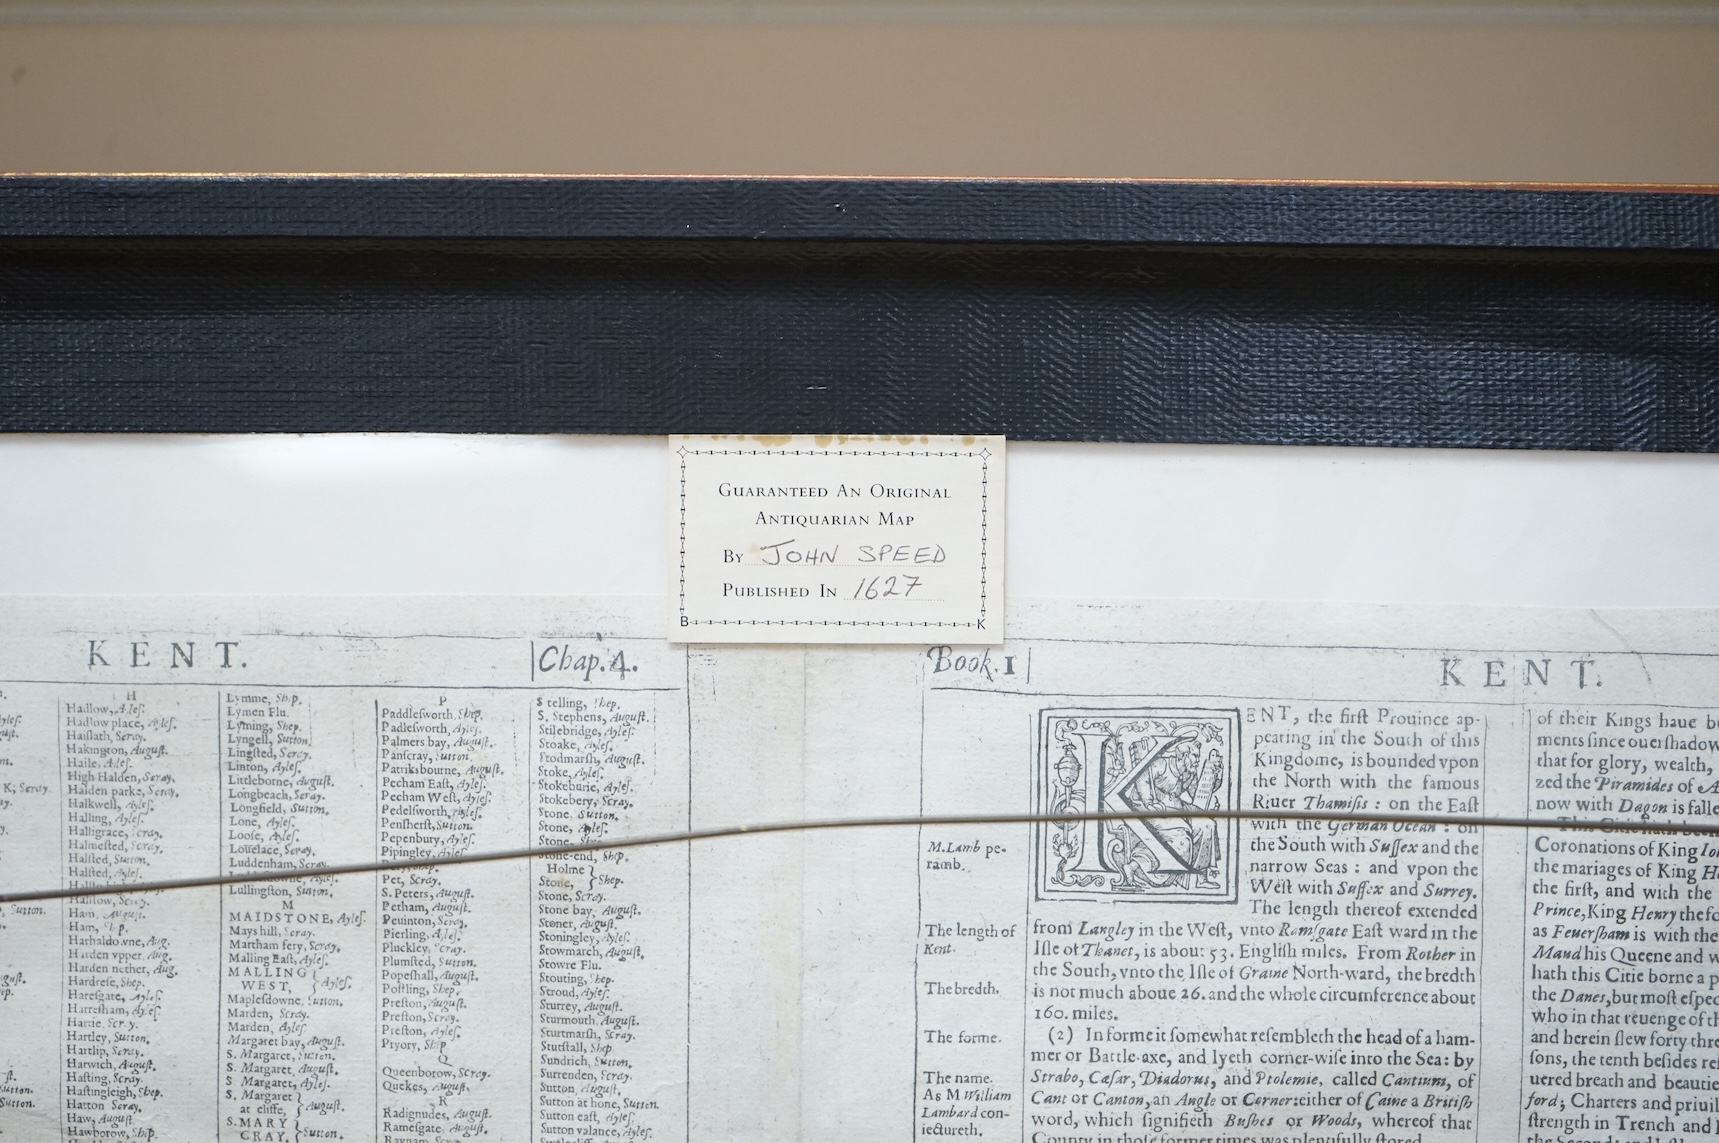 GUARANTEED AN ORIGINAL
ANTIQUARIAN MAP
BY JOHN SPEED
PUBLISHED IN 1627
B K
KENT.
Chap. 4.
H
Hadlow, Ayleſ.
Hadlow place, Ayleſ.
Haiſlath, Scray.
Hakington, Auguſt.
Haile, Ayleſ.
High Halden, Scray.
Halden parke, Scray.
Halkwell, Ayleſ.
Halling, Ayleſ.
Halligrace, Scray.
Halmeſted, Scray.
Halſted, Sutton.
Halſted, Ayleſ.
Halſtow, Scray.
Ham, Auguſt.
Ham, Shep.
Harbaldowne, Aug.
Harden vpper, Aug.
Harden nether, Aug.
Hardreſe, Shep.
Hareſgate, Ayleſ.
Harreſham, Ayleſ.
Hartie, Scray.
Hartley, Sutton.
Hartlip, Scray.
Harwich, Auguſt.
Haſting, Scray.
Haſtingleigh, Shep.
Hatton Scray.
Haw, Auguſt.
Hawborow, Ship.
Lymme, Shep.
Lymen Flu.
Lyming, Shep.
Lyngell, Sutton.
Lingſted, Scray.
Linton, Ayleſ.
Littleborne, Auguſt.
Longbeach, Scray.
Longfield, Sutton.
Lone, Ayleſ.
Looſe, Ayleſ.
Louelace, Scray.
Luddenham, Scray.
Lullingſton, Sutton.
M
MAIDSTONE, Ayleſ.
Mays hill, Scray.
Martham fery, Scray.
Malling Eaſt, Ayleſ.
MALLING
WEST, } Ayleſ.
Mapleſdowne, Sutton.
Marden, Scray.
Marden, Ayleſ.
Margaret bay, Auguſt.
S. Margaret, Sutton.
S. Margaret, Auguſt.
S. Margaret, Ayleſ.
S. Margaret
at cliffe, } Auguſt.
S. MARY
CRAY, } Sutton.
P
Paddleſworth, Shep.
Padleſworth, Ayleſ.
Palmers bay, Auguſt.
Panſcray, Sutton.
Patriksbourne, Auguſt.
Pecham Eaſt, Ayleſ.
Pecham Weſt, Ayleſ.
Pedelſworth, Ayleſ.
Penſherſt, Sutton.
Pepenbury, Ayleſ.
Pipingley, Ayleſ.
Pet, Scray.
S. Peters, Auguſt.
Petham, Auguſt.
Peuinton, Scray.
Pierling, Ayleſ.
Pluckley, Scray.
Plumſted, Sutton.
Popeſhall, Auguſt.
Poſtling, Shep.
Preſton, Auguſt.
Preſton, Scray.
Preſton, Ayleſ.
Pryory, Shep
Q
Queenborow, Scray.
Quekes, Auguſt.
R
Radignudes, Auguſt.
Rameſgate, Auguſt.
S telling, Shep.
S. Stephens, Auguſt.
Stilebridge, Ayleſ.
Stoake, Ayleſ.
Stodmarſh, Auguſt.
Stoke, Ayleſ.
Stokeburie, Ayleſ.
Stokebery, Scray.
Stone, Sutton.
Stone, Ayleſ.
Stone-end, Shep.
Holme
Stone, } Shep.
Stone, Scray.
Stone bay, Auguſt.
Stoner, Auguſt.
Stoningley, Ayleſ.
Stowmarch, Auguſt.
Stowre Flu.
Stouting, Shep.
Stroud, Ayleſ.
Sturrey, Auguſt.
Sturmouth, Auguſt.
Sturtmarſh, Scray.
Stutſtall, Shep
Sundrich, Sutton.
Surrenden, Scray.
Sutton, Auguſt.
Sutton at hone, Sutton.
Sutton eaſt, Ayleſ.
Sutton valance, Ayleſ.
Book. 1
KENT.
M. Lamb pe-
ramb.
The length of
Kent.
The bredth.
The forme.
The name.
As M William
Lambard con-
iectureth.
KENT, the firſt Prouince ap-
pearing in the South of this
Kingdome, is bounded vpon
the North with the famous
Riuer Thamiſis : on the Eaſt
with the German Ocean : on
the South with Suſſex and the
narrow Seas : and vpon the
Weſt with Suſſex and Surrey.
The length thereof extended
from Langley in the Weſt, vnto Ramſgate Eaſt ward in the
Iſle of Thanet, is about 53. Engliſh miles. From Rother in
the South, vnto the Iſle of Graine North-ward, the bredth
is not much aboue 26. and the whole circumference about
160. miles.
(2) In forme it ſomewhat reſembleth the head of a ham-
mer or Battle-axe, and lyeth corner-wiſe into the Sea: by
Strabo, Cæſar, Diadorus, and Ptolemie, called Cantium, of
Cant or Canton, an Angle or Corner: either of Caine a Britiſh
word, which ſignifieth Buſhes or Woods, whereof that
County in thoſe former times was plentifully ſtored.
of their Kings haue
ments ſince ouerſhadow
that for glory, wealth,
zed the Piramides of
now with Dagon is falle
This Citie hath been
Coronations of King
the mariages of King
the firſt, and with the
Prince, King Henry the
as Feuerſham is with the
Maud his Queene and
hath this Citie borne a
the Danes, but moſt eſpec
who in that reuenge of
and herein ſlew forty thre
ſons, the tenth beſides
uered breath and beautie
ford; Charters and priuil
ſtrength in Trench and